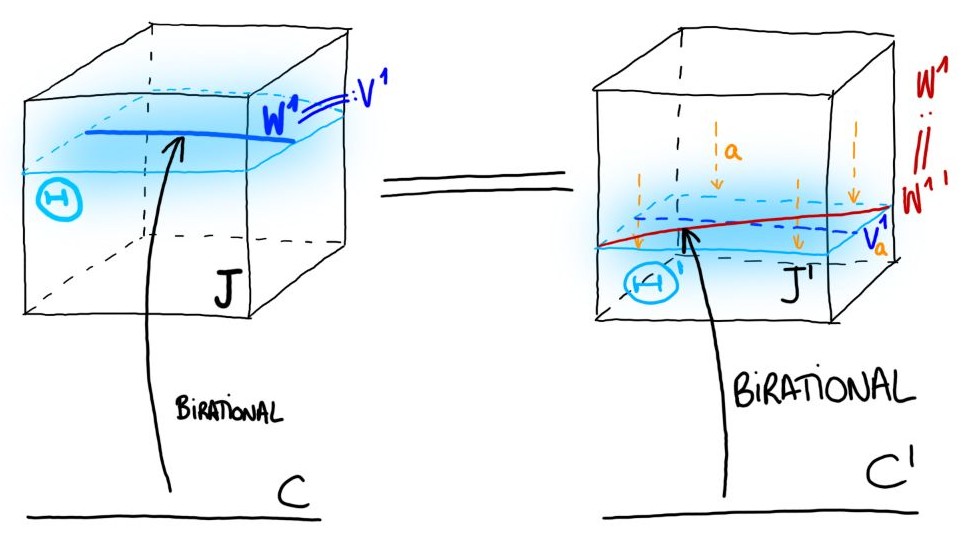 W¹ = V¹
Θ
J
BiRATiONAL
C
=
a
W¹
=
W¹'
V¹ₐ
Θ'
J'
BiRATiONAL
C'